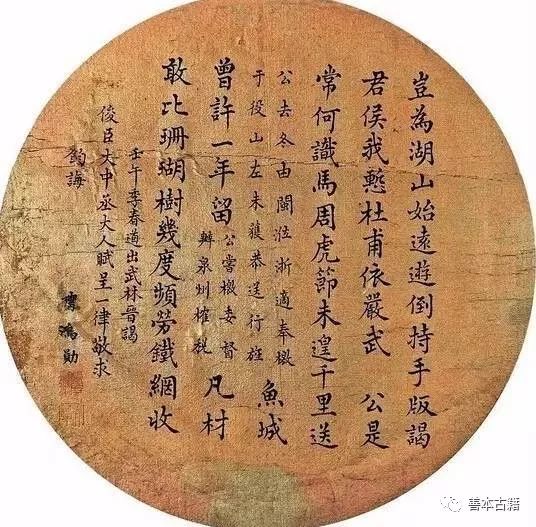 豈為湖山始遠遊倒持手版謁
君侯我慙杜甫依嚴武 公是
常何識馬周虎節未遑千里送
公去冬由閩涖浙適奉檄
于役山左未獲恭送行旌
魚城
曾許一年留
公嘗檄委督
辦泉州榷稅
凡材
敢比珊瑚樹幾度頻勞鐵網收
壬午季春道出武林晉謁
俊臣大中丞大人賦呈一律敬求
鈞誨
鴻勛
善本古籍